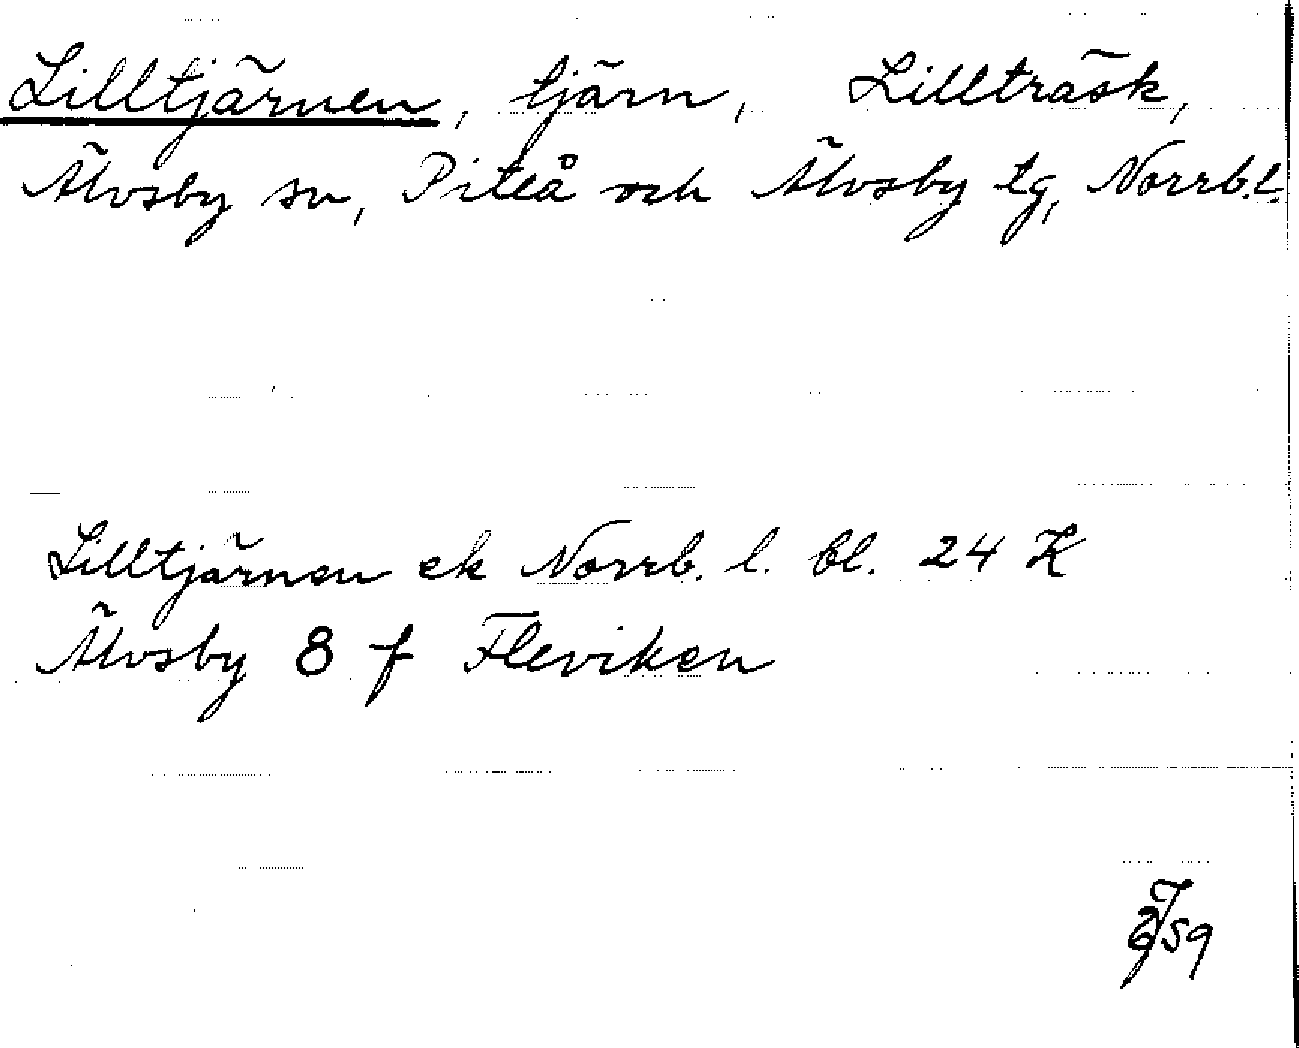 Lilltjärnen, tjärn, Lillträsk,
Älvsby sn, Piteå och Älvsby tg, Norrb.l.
Lilltjärnen ek Norrb. l. bl. 24 K
Älvsby 8 f Fleviken